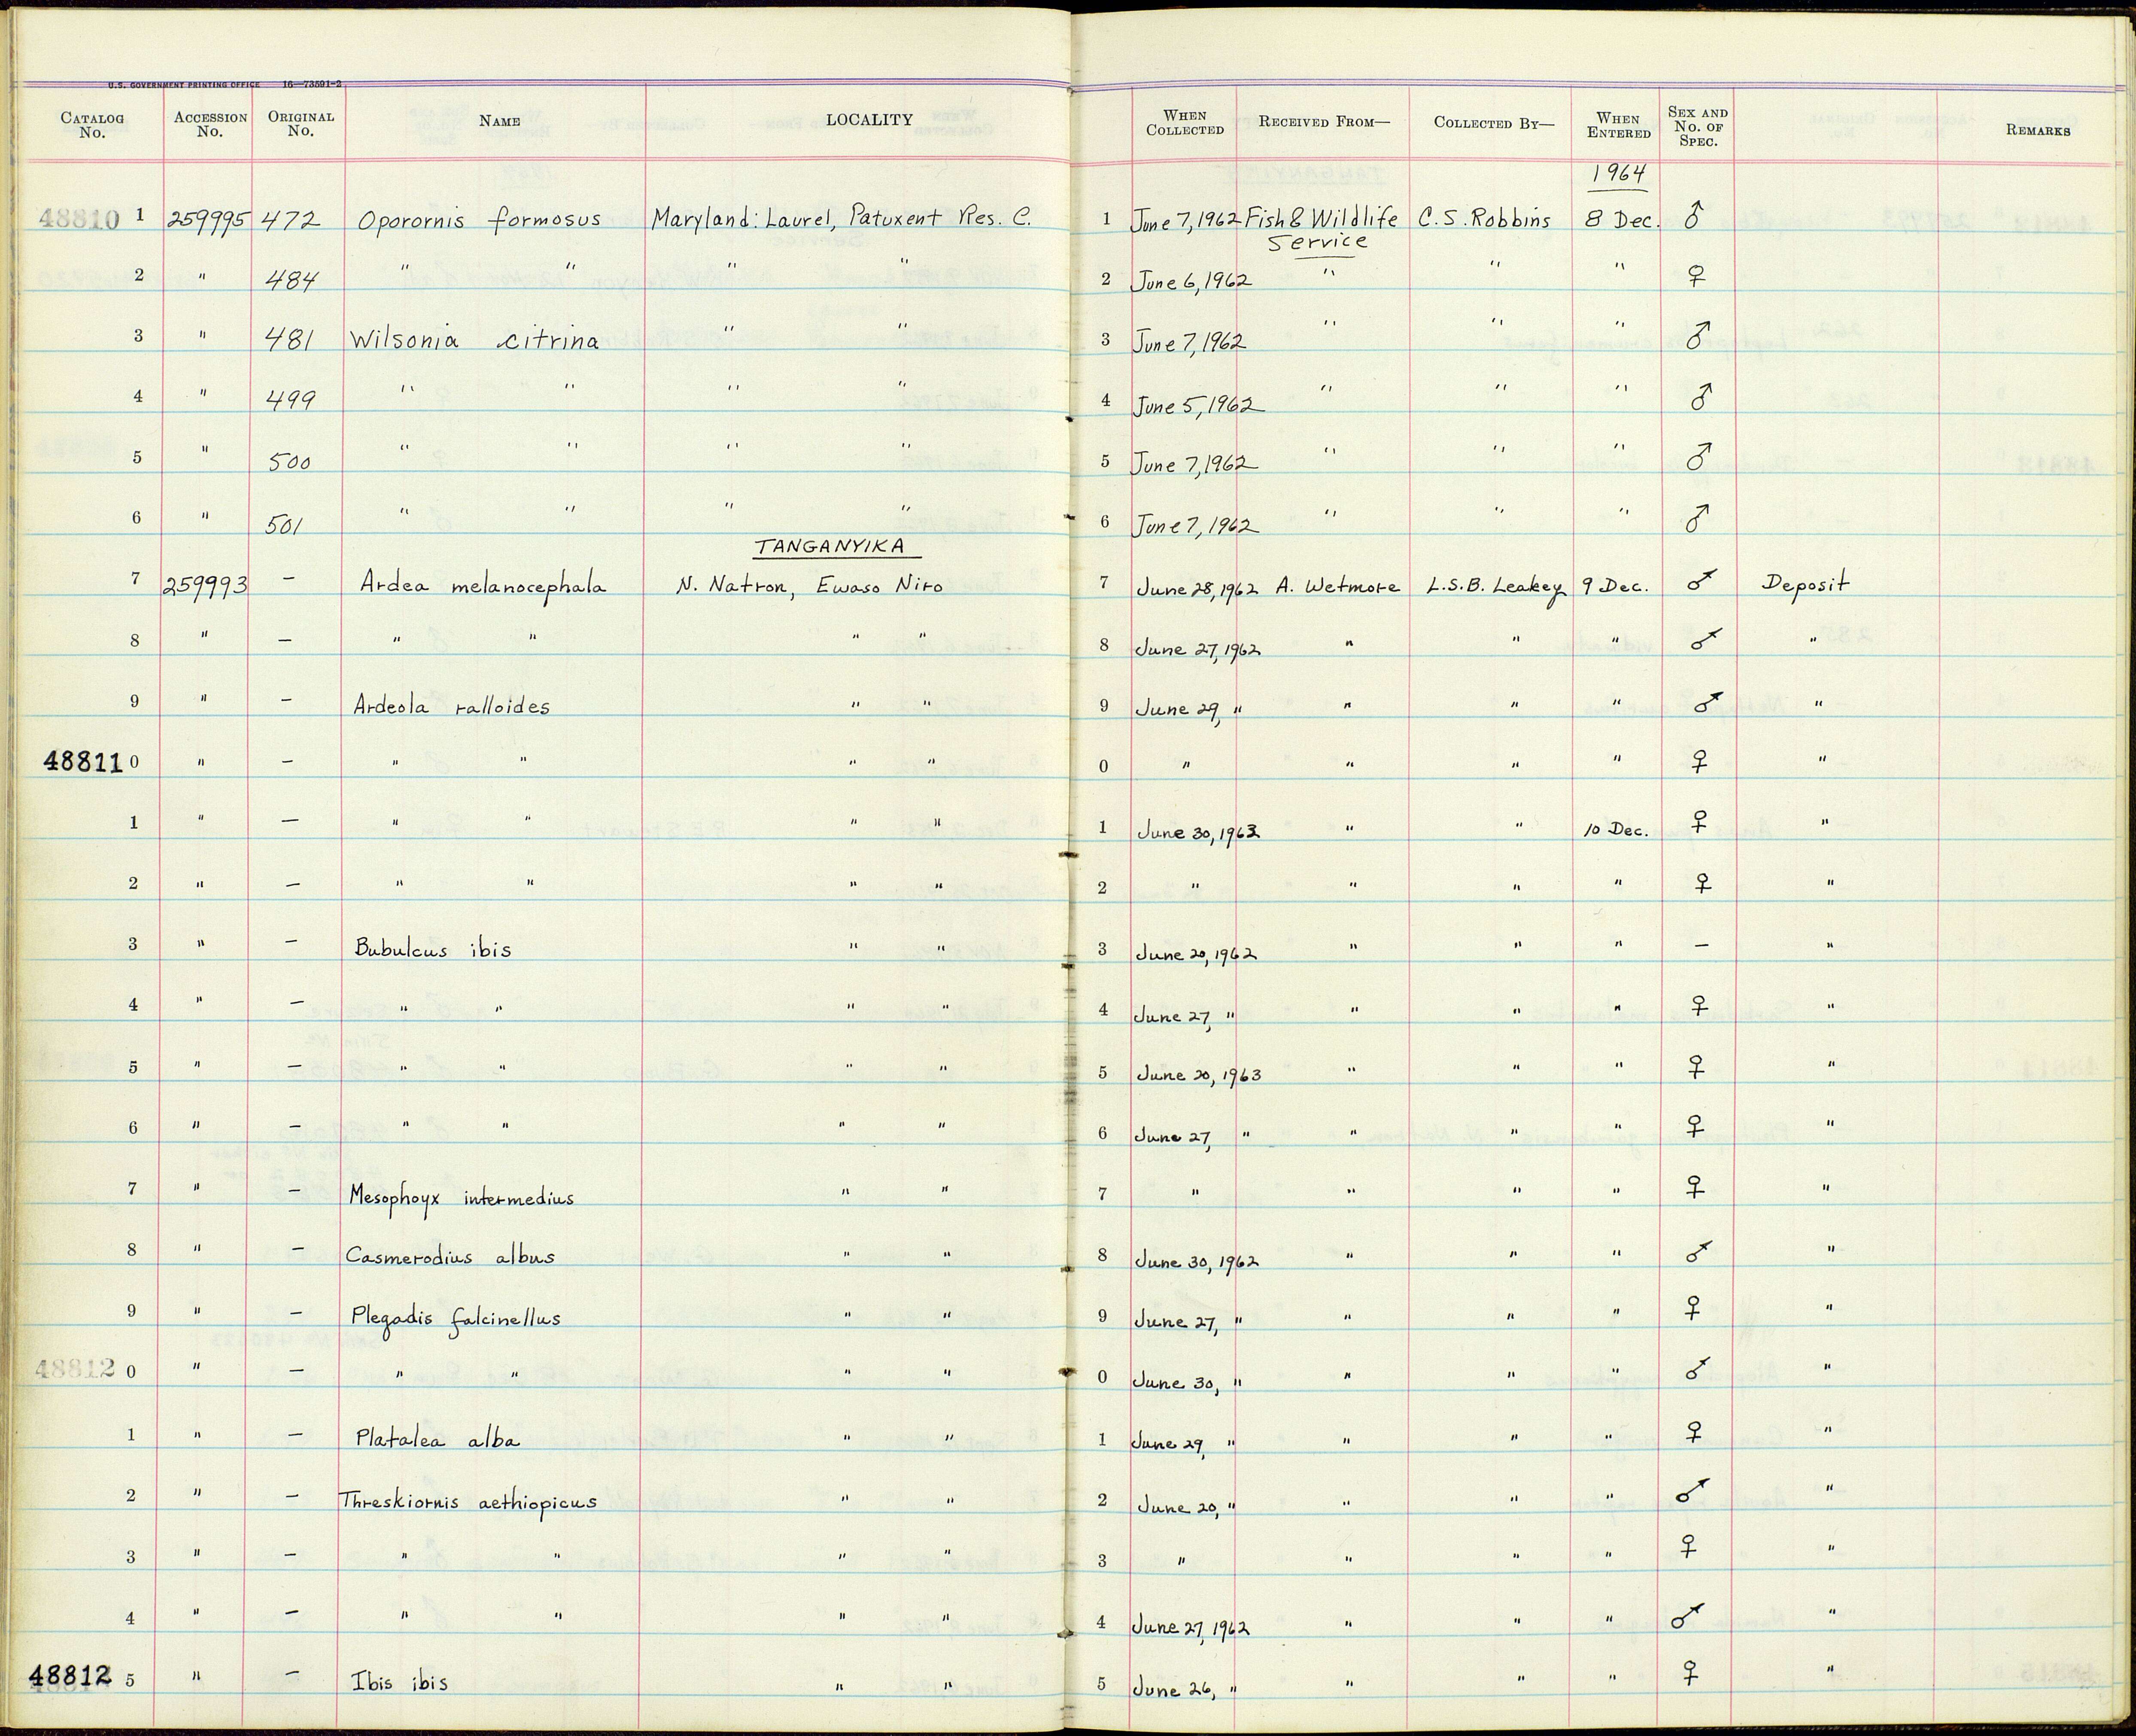 U.S. GOVERNMENT PRINTING OFFICE 16—73591-2
CATALOG No. ACCESSION No. ORIGINAL No. NAME LOCALITY WHEN COLLECTED RECEIVED FROM— COLLECTED BY— WHEN ENTERED SEX AND No. OF SPEC. REMARKS
1964
48810 1 259995 472 Oporornis formosus Maryland: Laurel, Patuxent Res. C. 1 June 7, 1962 Fish & Wildlife Service C.S. Robbins 8 Dec. ♂
2 " 484 " " " " 2 June 6, 1962 " " " ♀
3 " 481 Wilsonia citrina " " 3 June 7, 1962 " " " ♂
4 " 499 " " " " 4 June 5, 1962 " " " ♂
5 " 500 " " " " 5 June 7, 1962 " " " ♂
6 " 501 " " " " 6 June 7, 1962 " " " ♂
TANGANYIKA
7 259993 — Ardea melanocephala N. Natron, Ewaso Niro 7 June 28, 1962 A. Wetmore L.S.B. Leakey 9 Dec. ♂ Deposit
8 " — " " " " 8 June 27, 1962 " " " ♂ "
9 " — Ardeola ralloides " " 9 June 29, " " " " ♂ "
48811 0 " — " " " " 0 " " " " ♀ "
1 " — " " " " 1 June 30, 1963 " " 10 Dec. ♀ "
2 " — " " " " 2 " " " " ♀ "
3 " — Bubulcus ibis " " 3 June 20, 1962 " " " — "
4 " — " " " " 4 June 27, " " " " ♀ "
5 " — " " " " 5 June 20, 1963 " " " ♀ "
6 " — " " " " 6 June 27, " " " " ♀ "
7 " — Mesophoyx intermedius " " 7 " " " " ♀ "
8 " — Casmerodius albus " " 8 June 30, 1962 " " " ♂ "
9 " — Plegadis falcinellus " " 9 June 27, " " " " ♀ "
48812 0 " — " " " " 0 June 30, " " " " ♂ "
1 " — Platalea alba " " 1 June 29, " " " " ♀ "
2 " — Threskiornis aethiopicus " " 2 June 20, " " " " ♂ "
3 " — " " " " 3 " " " " ♀ "
4 " — " " " " 4 June 27, 1962 " " " ♂ "
48812 5 " — Ibis ibis " " 5 June 26, " " " " ♀ "